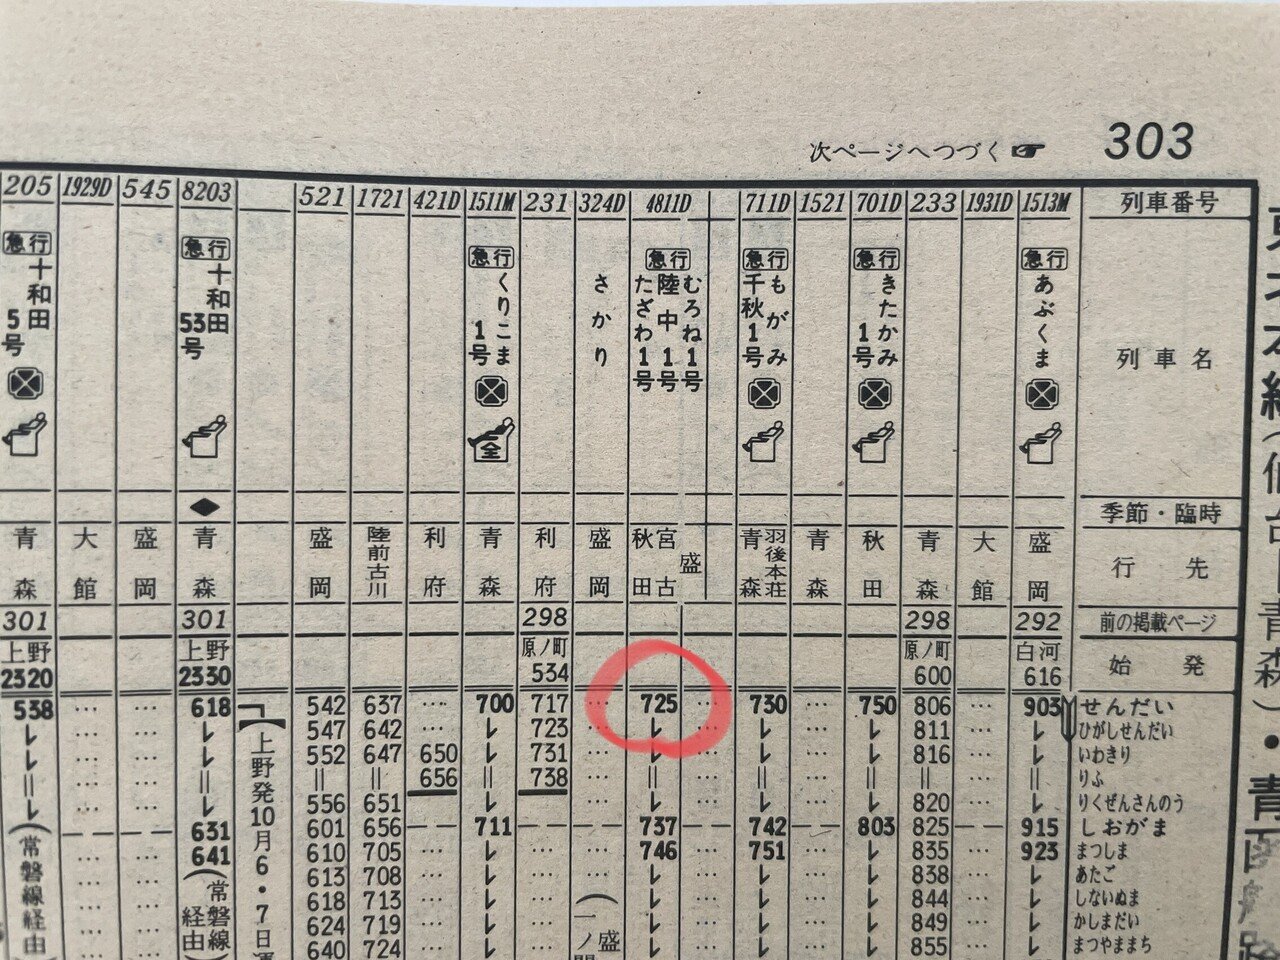 次ページへつづく☞ 303
205 1929D 545 8203 521 1721 421D 1511M 231 324D 4811D 711D 1521 701D 233 1931D 1513M 列車番号
急行 十和田5号
急行 十和田53号
急行 くりこま1号
全
さかり
急行 むろね1号 陸中1号 たざわ1号
急行 もがみ 千秋1号
急行 きたかみ1号
急行 あぶくま
列車名
◆ 季節・臨時
青森 大館 盛岡 青森 盛岡 陸前古川 利府 青森 利府 盛岡 宮古 秋田 盛 羽後本荘 青森 青森 秋田 青森 大館 盛岡 行先
301 301 298 298 292 前の掲載ページ
上野 上野 原ノ町 原ノ町 白河 始発
2320 2330 534 600 616
538 … … 618 542 637 … 700 717 … 725 … 730 … 750 806 … 903 せんだい
… … 547 642 … 723 … … … 811 … ひがしせんだい
… … 552 647 650 731 … … … 816 … いわきり
… … || || 656 || 738 … || … || … || || … || りふ
… … 556 651 … … … … 820 … りくぜんさんのう
631 601 656 711 737 742 803 825 915 しおがま
… … 641 610 705 … … … 746 … 751 … 835 … 923 まつしま
… … 613 708 … … … … 838 … あたご
… … 618 713 … … … … 844 … しないぬま
… … 624 719 … … … … 849 … かしまだい
… … 640 724 … … … … 855 … まつやままち
(常磐線経由)
(常磐線経由)
【上野発10月6・7日運
(一ノ
盛
東北本線(仙台―青森)・青函